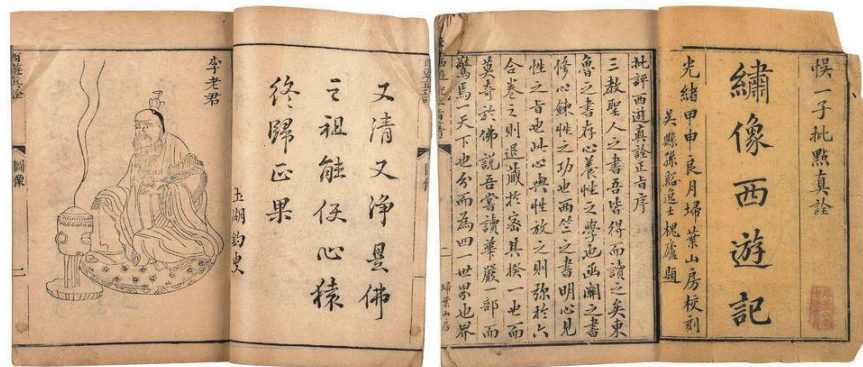 悞一子批點真詮
繡像西遊記
光緒甲申良月埽葉山房校刻
吳縣孫谿逸士槐廬題
批評西遊真詮正旨序
三教聖人之書吾皆得而讀之矣東
魯之書存心養性之學也函關之書
修心鍊性之功也西竺之書明心見
性之旨也此心與性放之則弥於六
合卷之則退藏於密其揆一也而
莫奇於佛說吾嘗讀華嚴一部而
驚焉一天下也分而為四一世界也界
埽葉山房
圖像
又清又淨是佛
之祖能伏心猿
終歸正果
五湖釣叟
李老君
西遊真詮
圖像
二